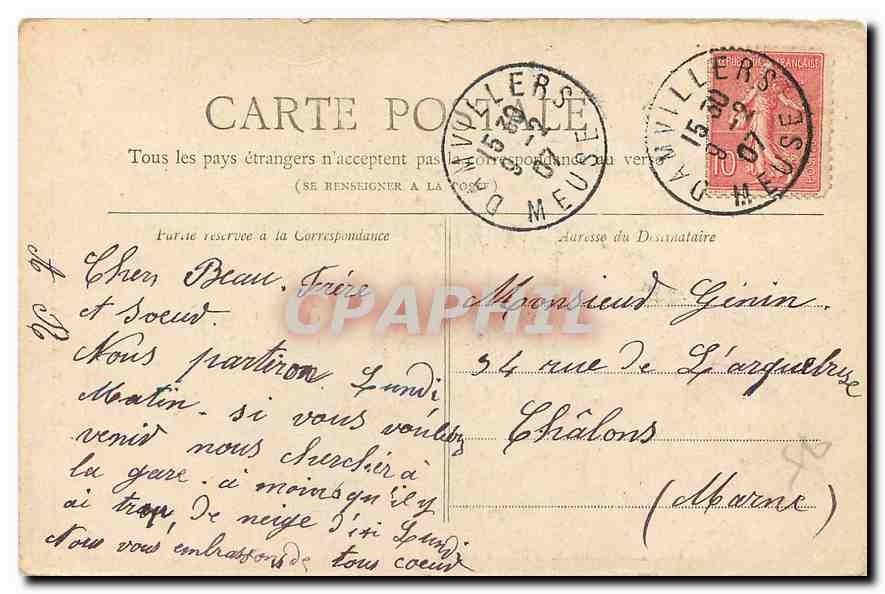 CARTE POSTALE
Tous les pays étrangers n'acceptent pas la correspondance au verso
(SE RENSEIGNER A LA POSTE)
DAMVILLERS
15 30
9 -2
07
MEUSE
DAMVILLERS
15 30
9 -2
07
MEUSE
REPUBLIQUE FRANCAISE
10
POSTES
Partie réservée à la Correspondance
Adresse du Destinataire
Cher Beau. Frére
et Soeur.
Nous partiron Lundi
Matin. si vous vouliez
venir nous cherchér à
la gare. à moins qu'il y
ai trop de neige d'ici Lundi
Nous vous embrassons de tous coeur
Monsieur Génin.
34 rue de L'arquebuse
Châlons
(Marne)
CPAPHIL